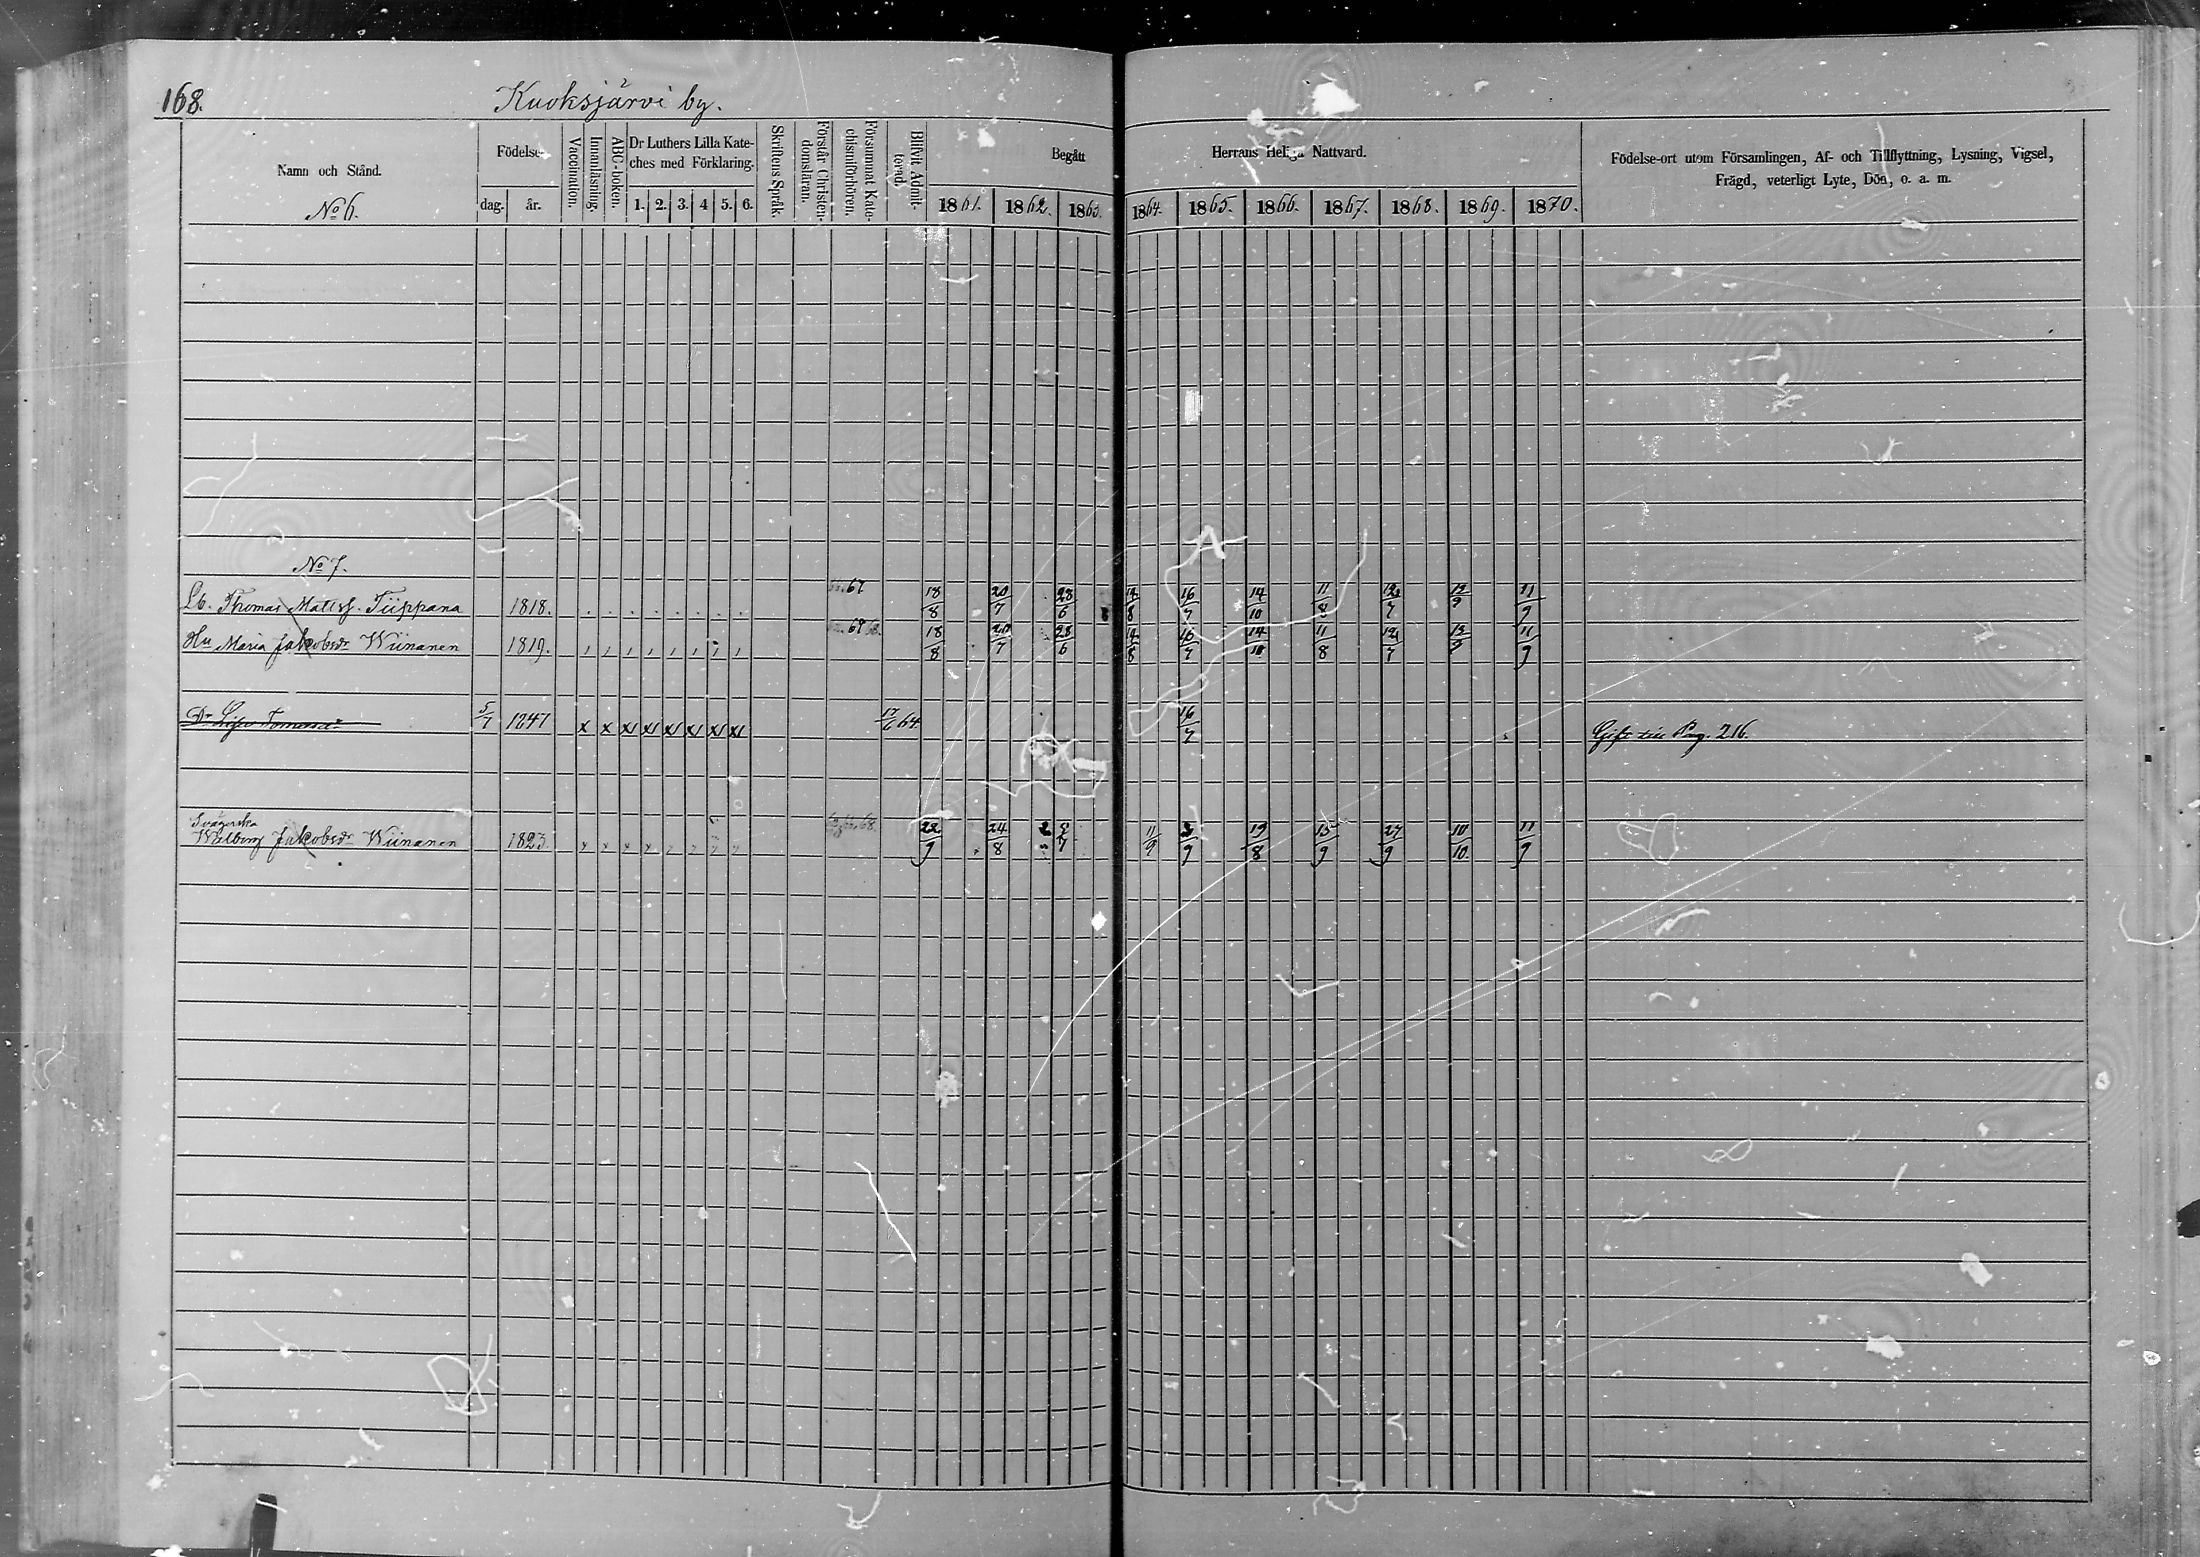 168.
Kuoksjärvi by.
Namn och Stånd.
Födelse
dag. år.
Vaccination.
Innanläsning.
ABC-boken.
Dr Luthers Lilla Kate-
ches med Förklaring.
1. 2. 3. 4 5. 6.
Skriftens Språk.
Förstår Christen-
domsläran.
Försummat Kate-
chismiförhören.
Blifvit Admit-
terad.
Begått Herrans Heliga Nattvard.
1861. 1862. 1863. 1864. 1865. 1866. 1867. 1868. 1869. 1870.
Födelse-ort utom Församlingen, Af- och Tillflyttning, Lysning, Vigsel,
Frägd, veterligt Lyte, Död, o. a. m.
No 6.
No 7.
Lb. Thomas Mattss. Tiippana 1818. 67 18/8 20/7 28/6 16/7 14/10 11/8 11/9
Hu Maria Jakobsdr Wiinanen 1819. 18/8 28/6 16/7 14/10 11/8 11/9
Dr 5/7 1847 x x x x x x x x 17/6 64 16/7 Pag. 216.
Svägerska
Walborg Jakobsdr Wiinanen 1823. 22/9 24/8 11/9 19/8 15/9 27/9 10/10. 11/9